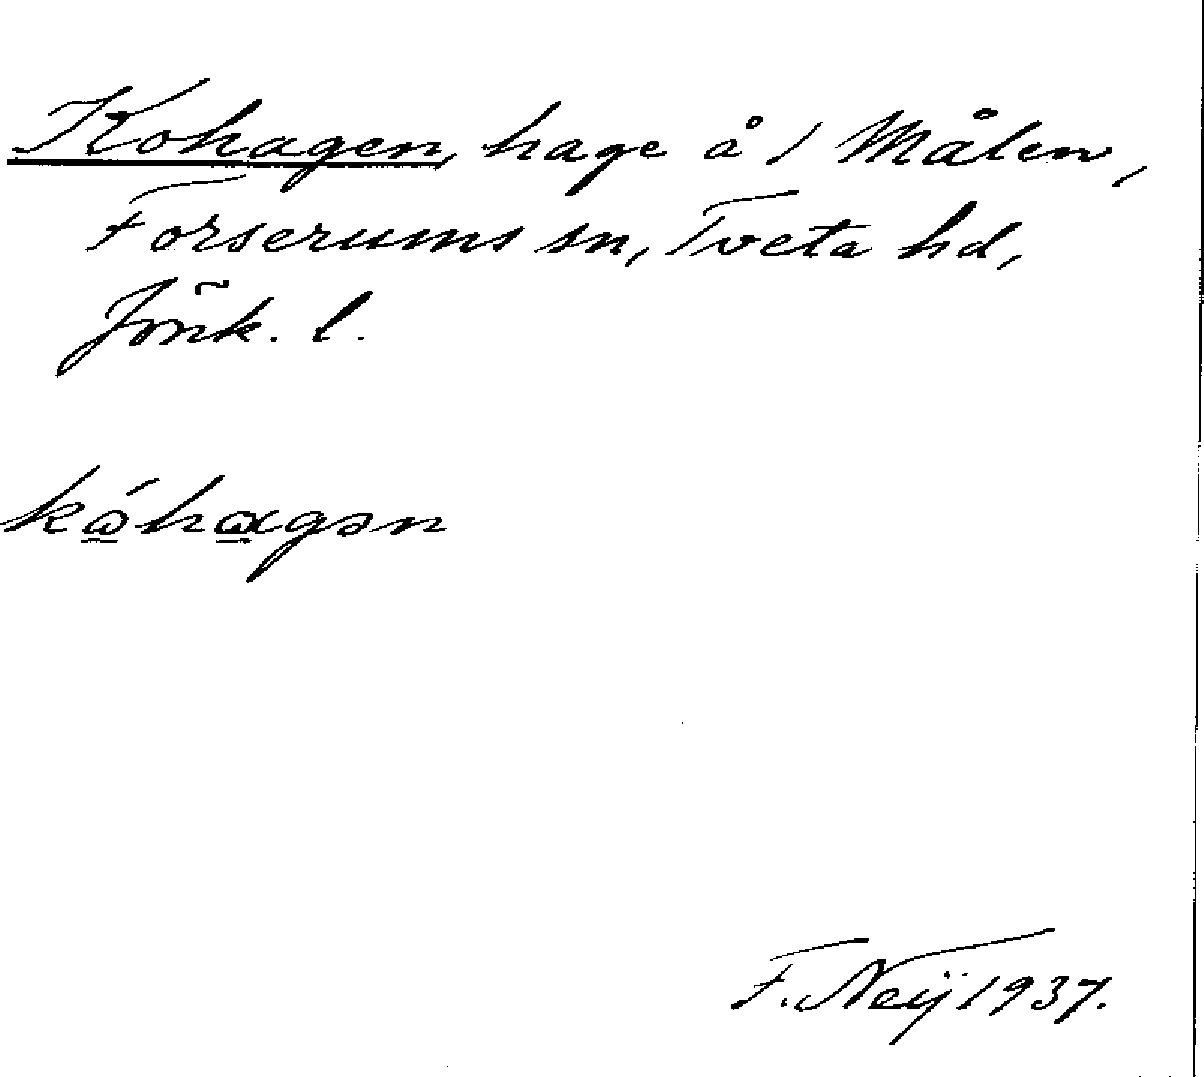 Kohagen, hage å 1 Målen,
Forserums sn, Tveta hd,
Jönk. l.
kɷ́hɑgən
F. Neij 1937.